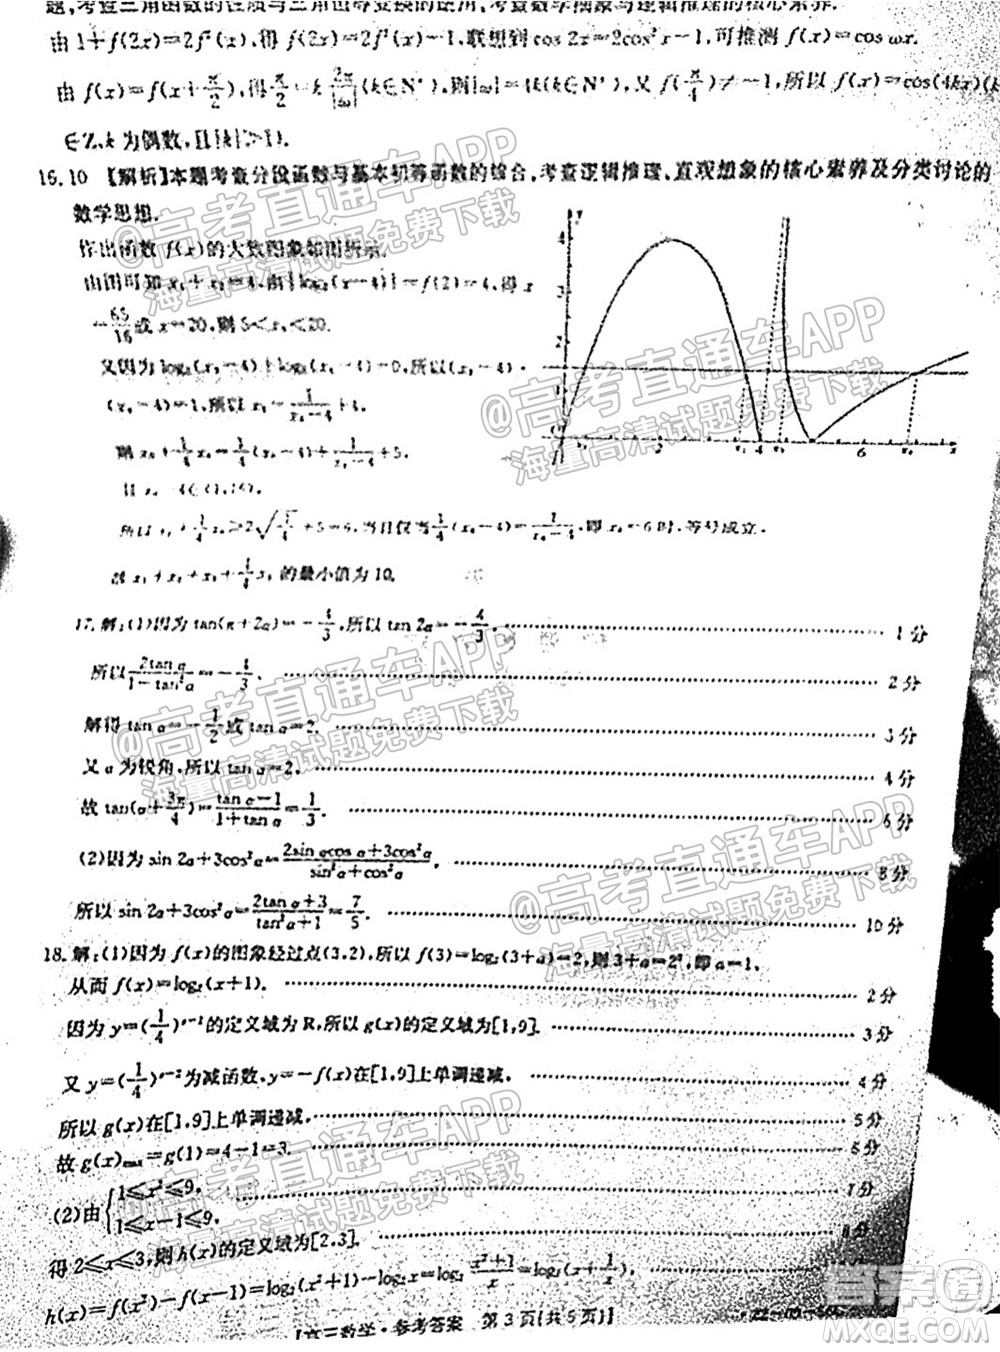 题,考查三角函数的性质与三角恒等变换的运用,考查数学抽象与逻辑推理的核心素养.
由1+f(2x)=2f²(x),得f(2x)=2f²(x)-1,联想到cos 2x=2cos²x-1,可推测f(x)=cos ωx.
由f(x)=f(x+π/2),得π/2=k·2π/|ω|(k∈N*),则|ω|=4k(k∈N*),又f(π/4)≠-1,所以f(x)=cos(4kx)(k
∈Z,k为偶数,且|k|≥1).
16.10 【解析】本题考查分段函数与基本初等函数的综合,考查逻辑推理、直观想象的核心素养及分类讨论的
数学思想.
作出函数f(x)的大致图象如图所示.
由图可知x₁+x₂=4,由|log₂(x-4)|=f(2)=4,得x
=65/16或x=20,则5<x₄<20.
又因为log₂(x₃-4)+log₂(x₄-4)=0,所以(x₃-4)·
(x₄-4)=1,所以x₃=1/(x₄-4)+4.
则x₃+1/4x₄=1/4(x₄-4)+1/(x₄-4)+5.
且x₄-4∈(1,16).
所以x₃+1/4x₄≥2√(1/4)+5=6,当且仅当1/4(x₄-4)=1/(x₄-4),即x₄=6时,等号成立.
故x₁+x₂+x₃+1/4x₄的最小值为10.
y
4
3
2
1
O
2
4
6
x
17.解:(1)因为tan(π+2α)=-4/3,所以tan 2α=-4/3. 1分
所以2tan α/(1-tan²α)=-4/3. 2分
解得tan α=-1/2或tan α=2. 3分
又α为锐角,所以tan α=2. 4分
故tan(α+3π/4)=(tan α-1)/(1+tan α)=1/3. 6分
(2)因为sin 2α+3cos²α=(2sin αcos α+3cos²α)/(sin²α+cos²α), 8分
所以sin 2α+3cos²α=(2tan α+3)/(tan²α+1)=7/5. 10分
18.解:(1)因为f(x)的图象经过点(3,2),所以f(3)=log₂(3+a)=2,则3+a=2²,即a=1,
从而f(x)=log₂(x+1). 2分
因为y=(1/4)ˣ⁻²的定义域为R,所以g(x)的定义域为[1,9]. 3分
又y=(1/4)ˣ⁻²为减函数,y=-f(x)在[1,9]上单调递减, 4分
所以g(x)在[1,9]上单调递减. 5分
故g(x)max=g(1)=4-1=3. 6分
(2)由{1≤x²≤9,
1≤x-1≤9, 7分
得2≤x≤3,则h(x)的定义域为[2,3]. 8分
h(x)=log₂(x²+1)-log₂x=log₂(x²+1)/x=log₂(x+1/x).
【高三数学·参考答案 第3页(共5页)】
@高考直通车APP
海量高清试题免费下载
@高考直通车APP
海量高清试题免费下载
@高考直通车APP
海量高清试题免费下载
@高考直通车APP
海量高清试题免费下载
@高考直通车APP
海量高清试题免费下载
答案圈
MXQE.COM